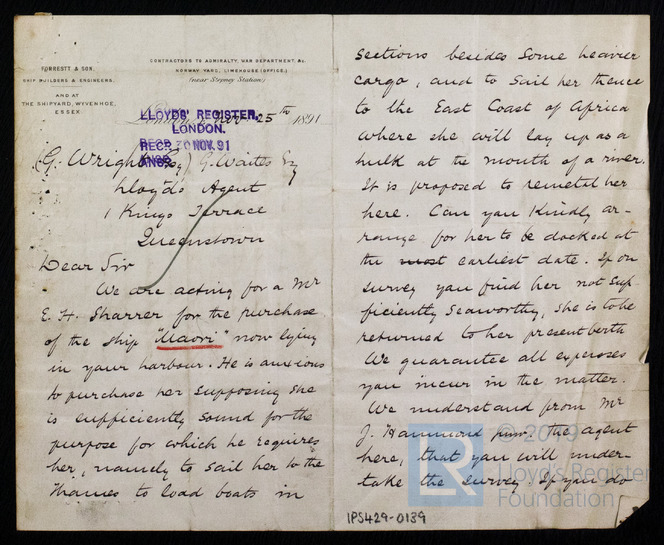 FORRESTT & SON.
SHIP BUILDERS & ENGINEERS.
AND AT
THE SHIPYARD, WYVENHOE,
ESSEX
CONTRACTORS TO ADMIRALTY, WAR DEPARTMENT, &c.
NORWAY YARD, LIMEHOUSE (OFFICE.)
(near Stepney Station)
Nov 25th 1891
LLOYDS' REGISTER,
LONDON.
RECD 30 NOV. 91
ANSD.
(G. Wright Esq) G. Waites Esq
Lloyds Agent
1 Kings Terrace
Queenstown
Dear Sir
We are acting for a Mr
E. H. Sharrer for the purchase
of the ship "Maori" now lying
in your harbour. He is anxious
to purchase her supposing she
is sufficiently sound for the
purpose for which he requires
her, namely to sail her to the
Thames to load boats in
sections besides some heavier
cargo, and to sail her thence
to the East Coast of Africa
where she will lay up as a
hulk at the mouth of a river.
It is proposed to remetal her
here. Can you kindly ar-
range for her to be docked at
the most earliest date. If on
survey you find her not suf-
ficiently seaworthy, she is to be
returned to her present berth
We guarantee all expenses
you incur in the matter.
We understand from Mr
J. Hammond the agent
here, that you will under-
take the survey. If you do
© 2019
LR
Lloyd's Register
Foundation
IPS429-0139